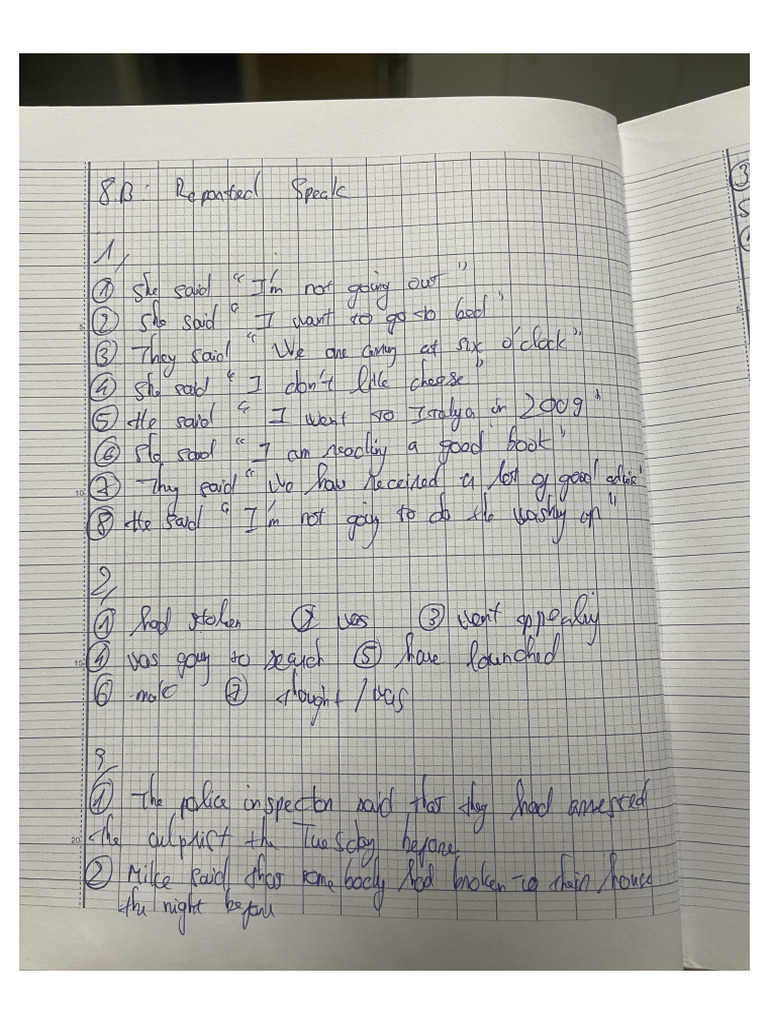 8.B: Reported Speak
1,
① She said "I'm not going out"
② She said "I want to go to bed"
③ They said "We are at six o'clock"
④ She said "I don't like cheese"
⑤ He said "I went to in 2009"
⑥ She said "I am reading a good book"
⑦ They said "We have received a lot of good advice"
⑧ He said "I'm not going to do the washing up"
2,
① had stolen ② was ③ appealing
④ was going to ⑤ have launched
⑥ ⑦ thought / was
3,
① The police inspector said that they had arrested
the the Tuesday before
② Mike said that somebody had broken to their house
the night before
③